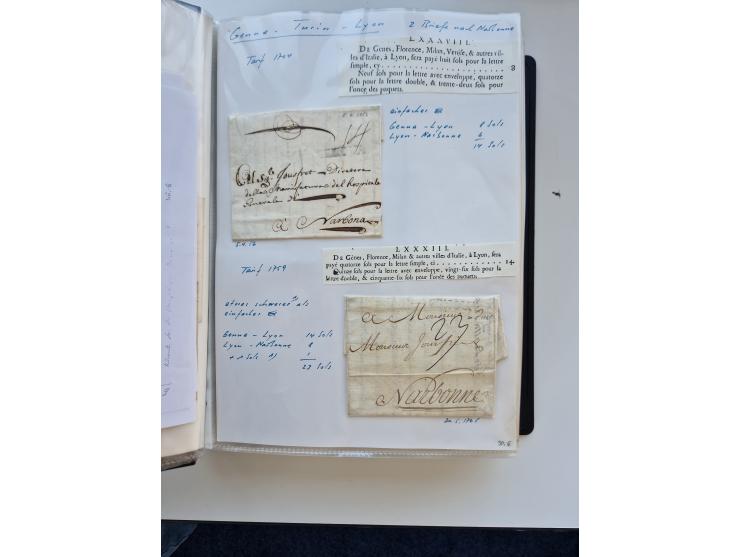 Genua - Turin - Lyon 2 Briefe nach Narbonne
LXXXVIII.
Tarif 1704
DE Gènes, Florence, Milan, Venise, & autres villes
d'Italie, à Lyon, sera payé huit sols pour la lettre
simple, cy 8
Neuf sols pour la lettre avec enveloppe, quatorze
sols pour la lettre double, & trente-deux sols pour
l'once des paquets.
einfacher
Genua - Lyon 8 Sols
Lyon - Narbonne 6
14 Sols
14
Jouffret
del Hospitale
Generale di
à Narbona
LXXXIII.
DE Gènes, Florence, Milan & autres villes d'Italie, à Lyon, sera
payé quatorze sols pour la lettre simple, ci 14
Quinze sols pour la lettre avec enveloppe, vingt-six sols pour la
lettre double, & cinquante-six sols pour l'once des paquets.
Tarif 1759
etwas schwerer als
einfacher
Genua - Lyon 14 Sols
Lyon - Narbonne 8
1
23 Sols
à Monsieur
23
Monsieur
Narbonne